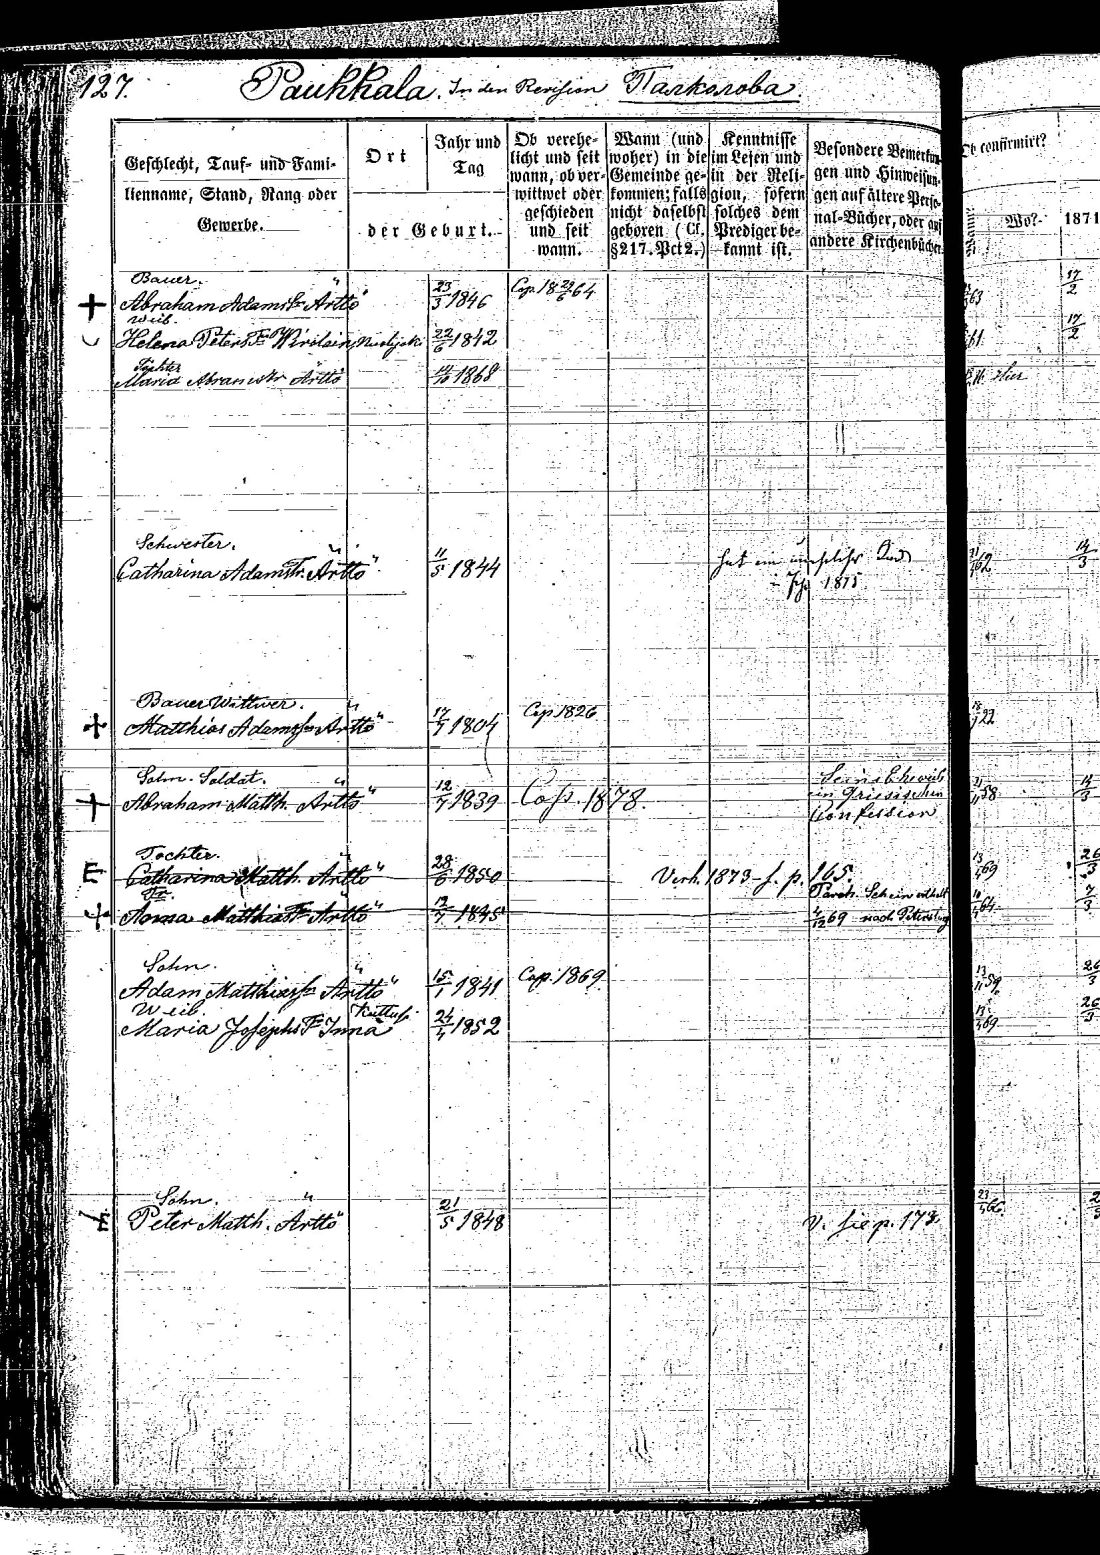 127. Paukkala. In den Revision Палколова.
Geschlecht, Tauf- und Fami-
lienname, Stand, Rang oder
Gewerbe.
Ort
der Geburt.
Jahr und
Tag
Ob verehe-
licht und seit
wann, ob ver-
wittwet oder
geschieden
und seit
wann.
Wann (und
woher) in die
Gemeinde ge-
kommen; falls
nicht daselbst
geboren (Cf.
§ 217. Pct 2.)
Kenntnisse
im Lesen und
in der Reli-
gion, sofern
solches dem
Prediger be-
kannt ist.
Besondere Bemerkun-
gen und Hinweisun-
gen auf ältere Perso-
nal-Bücher, oder auf
andere Kirchenbücher
Ob confirmirt?
Wann?
Wo?
1871
Bauer.
Abraham Adams Sn Arttö 23/3 1846 Cap. 18 29/6 64 63 17/2
Weib.
Helena Peters Tr 22/6 1842 61 17/2
Tochter
Maria Abrams tr Arttö 1868 Hier
Schwester.
Catharina Adams Tr. Arttö 11/5 1844 hat ein 62 14/3
1875
Bauer Wittwer.
Matthias Adams Sn Arttö 17/7 1804 Cap 1826 22
Sohn. Soldat.
Abraham Matth. Arttö 12/7 1839 Cop. 1878. Sein Eheweib
58 14/3
Confession
Tochter.
E Catharina Matth. Arttö 28/6 1850 Verh. 1873 s. p. 165. 69 26/3
Tr.
Anna Matthias Tr Arttö 1845 Schein 64 7/3
69 nach Petersburg
Sohn.
Adam Matthias Sn Arttö 15/1 1841 Cop. 1869 59 26/3
Weib.
Maria Josephs Tr Inna 24/4 1852 69 26/3
Sohn.
E Peter Matth. Arttö 21/5 1848 V. sie p. 173 66